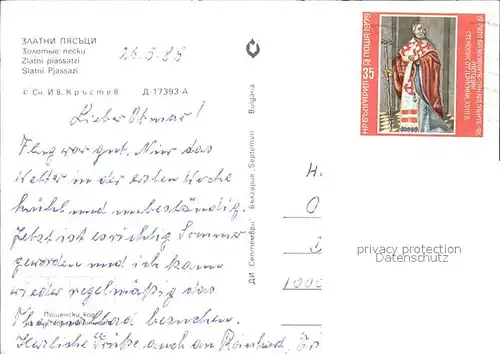 ЗЛАТНИ ПЯСЪЦИ
Золотые пески
Zlatni piassatzi
Slatni Pjassazi
26.5.88
с Сн. Ив. Кръстев Д-17393-А
ДИ „Септември" България „Septemvri" Bulgaria
Lieber Otmar!
Flug war gut. Nur das
Wetter in der ersten Woche
kühl und unbeständig.
Jetzt ist es richtig Sommer
geworden und ich kann
wieder regelmäßig das
Thermalbad besuchen.
Herzliche Grüße auch an Reinhard,
Пощенски код
НР БЪЛГАРИЯ ПОЩА·1979
35
H.
O
1000
privacy protection
Datenschutz